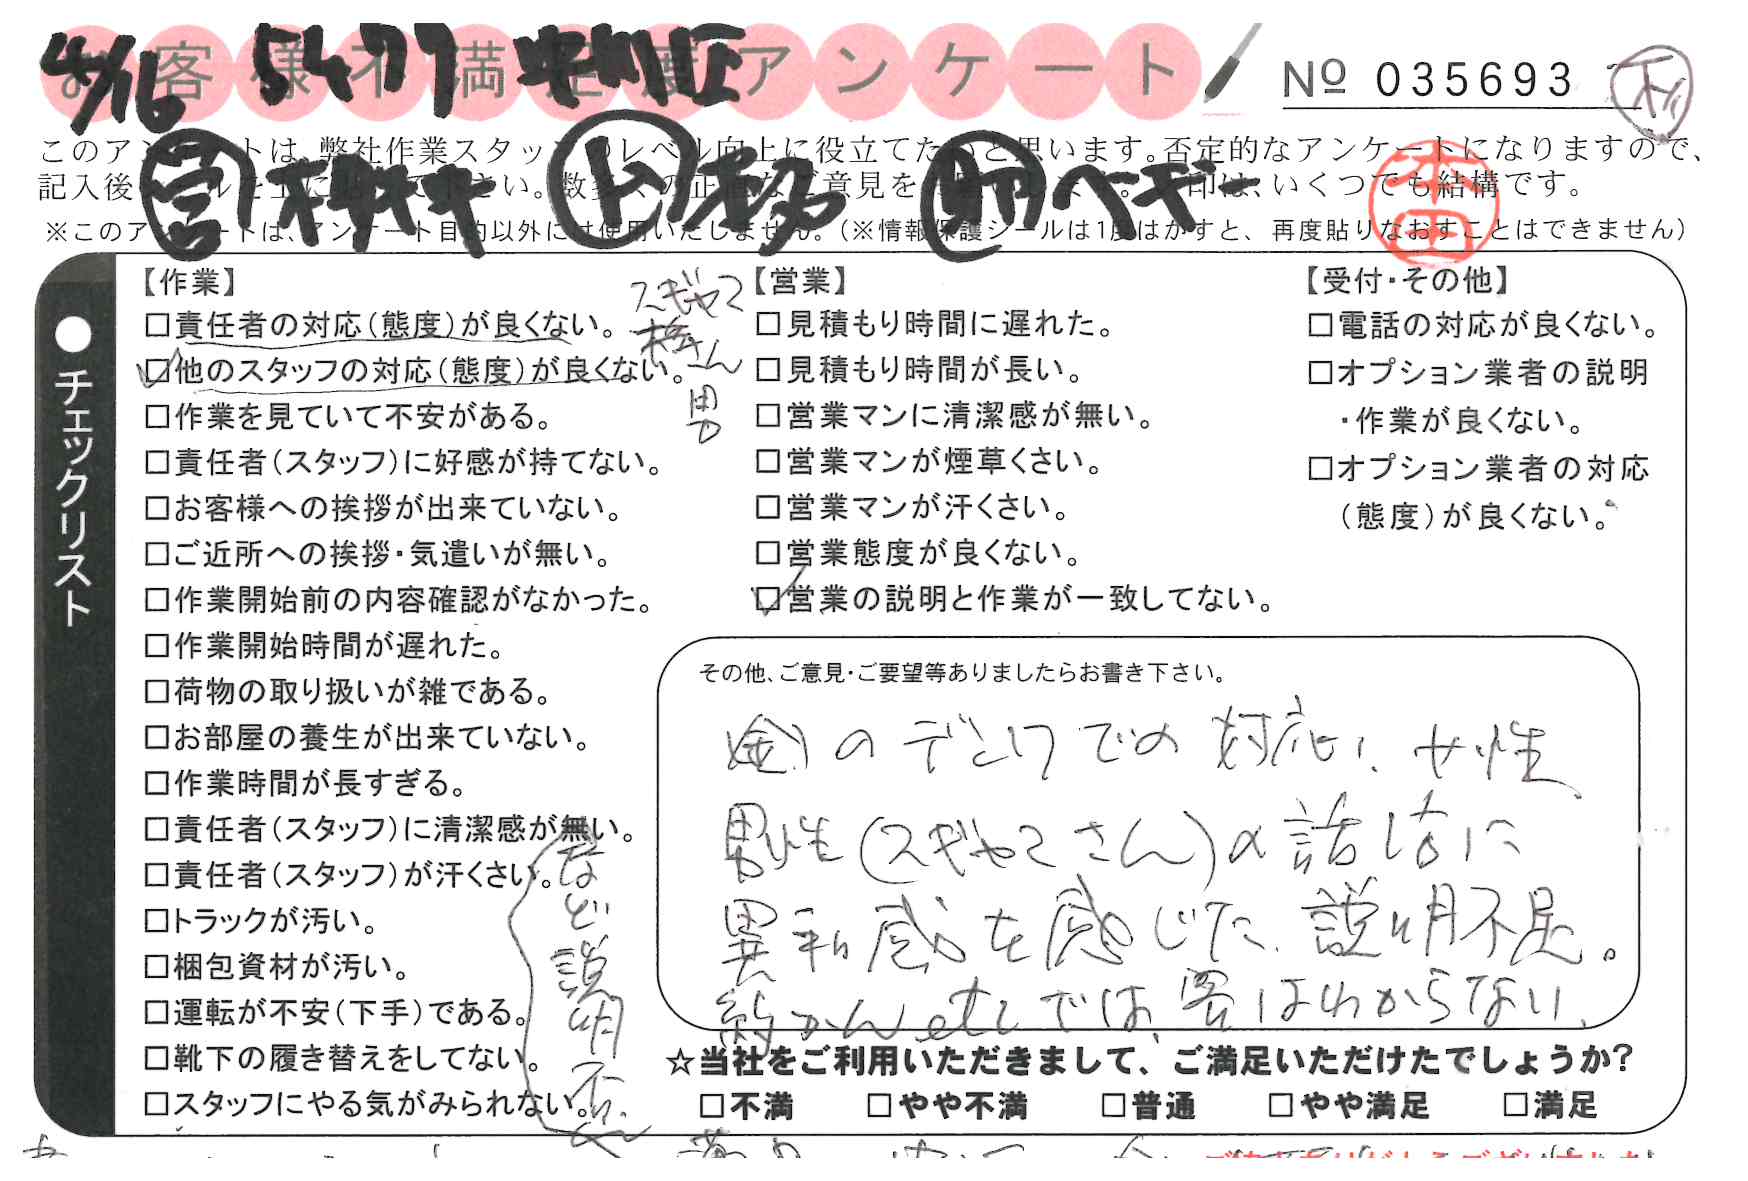 お客様不満足度アンケート
4/16 5477
№ 035693
このアンケートは、弊社作業スタッフのレベル向上に役立てたいと思います。否定的なアンケートになりますので、
記入後シールを上に貼って下さい。数多くの正直なご意見をお願いします。✓印は、いくつでも結構です。
※このアンケートは、アンケート目的以外には使用いたしません。（※情報保護シールは1度はがすと、再度貼りなおすことはできません）
本田
●チェックリスト
【作業】
□責任者の対応（態度）が良くない。
□他のスタッフの対応（態度）が良くない。
スギヤマ
さん
□作業を見ていて不安がある。
□責任者（スタッフ）に好感が持てない。
□お客様への挨拶が出来ていない。
□ご近所への挨拶・気遣いが無い。
□作業開始前の内容確認がなかった。
□作業開始時間が遅れた。
□荷物の取り扱いが雑である。
□お部屋の養生が出来ていない。
□作業時間が長すぎる。
□責任者（スタッフ）に清潔感が無い。
□責任者（スタッフ）が汗くさい。
□トラックが汚い。
□梱包資材が汚い。
□運転が不安（下手）である。
□靴下の履き替えをしてない。
□スタッフにやる気がみられない。
など説明不
【営業】
□見積もり時間に遅れた。
□見積もり時間が長い。
□営業マンに清潔感が無い。
□営業マンが煙草くさい。
□営業マンが汗くさい。
□営業態度が良くない。
□営業の説明と作業が一致してない。
【受付・その他】
□電話の対応が良くない。
□オプション業者の説明
・作業が良くない。
□オプション業者の対応
（態度）が良くない。
その他、ご意見・ご要望等ありましたらお書き下さい。
のデンワでの対応、女性
男性（スギヤマさん）の話法に
異和感を感じた、説明不足。
約かんetcでは、客はわからない、
☆当社をご利用いただきまして、ご満足いただけたでしょうか？
□不満 □やや不満 □普通 □やや満足 □満足